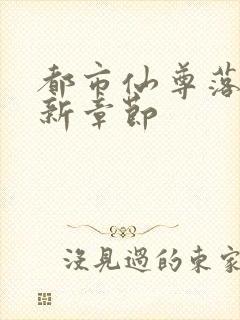 都市仙尊落
新章節
沒見過的東家